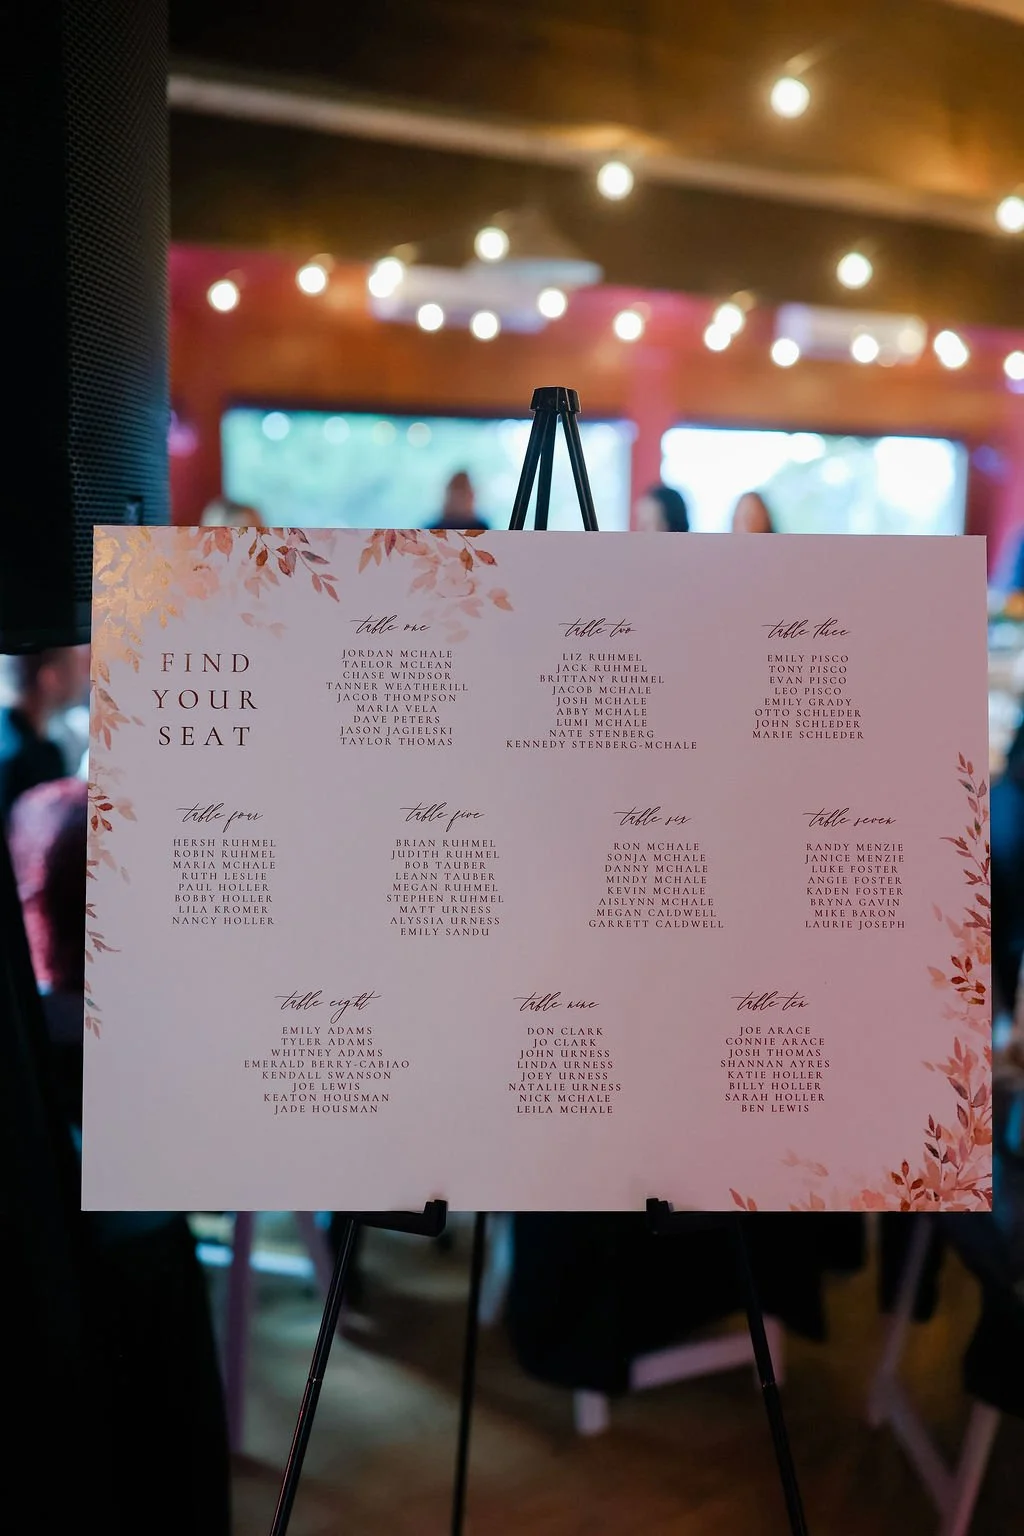 FIND
YOUR
SEAT
table one
JORDAN MCHALE
TAELOR MCLEAN
CHASE WINDSOR
TANNER WEATHERILL
JACOB THOMPSON
MARIA VELA
DAVE PETERS
JASON JAGIELSKI
TAYLOR THOMAS
table two
LIZ RUHMEL
JACK RUHMEL
BRITTANY RUHMEL
JACOB MCHALE
JOSH MCHALE
ABBY MCHALE
LUMI MCHALE
NATE STENBERG
KENNEDY STENBERG-MCHALE
table three
EMILY PISCO
TONY PISCO
EVAN PISCO
LEO PISCO
EMILY GRADY
OTTO SCHLEDER
JOHN SCHLEDER
MARIE SCHLEDER
table four
HERSH RUHMEL
ROBIN RUHMEL
MARIA MCHALE
RUTH LESLIE
PAUL HOLLER
BOBBY HOLLER
LILA KROMER
NANCY HOLLER
table five
BRIAN RUHMEL
JUDITH RUHMEL
BOB TAUBER
LEANN TAUBER
MEGAN RUHMEL
STEPHEN RUHMEL
MATT URNESS
ALYSSIA URNESS
EMILY SANDU
table six
RON MCHALE
SONJA MCHALE
DANNY MCHALE
MINDY MCHALE
KEVIN MCHALE
AISLYNN MCHALE
MEGAN CALDWELL
GARRETT CALDWELL
table seven
RANDY MENZIE
JANICE MENZIE
LUKE FOSTER
ANGIE FOSTER
KADEN FOSTER
BRYNA GAVIN
MIKE BARON
LAURIE JOSEPH
table eight
EMILY ADAMS
TYLER ADAMS
WHITNEY ADAMS
EMERALD BERRY-CABIAO
KENDALL SWANSON
JOE LEWIS
KEATON HOUSMAN
JADE HOUSMAN
table nine
DON CLARK
JO CLARK
JOHN URNESS
LINDA URNESS
JOEY URNESS
NATALIE URNESS
NICK MCHALE
LEILA MCHALE
table ten
JOE ARACE
CONNIE ARACE
JOSH THOMAS
SHANNAN AYRES
KATIE HOLLER
BILLY HOLLER
SARAH HOLLER
BEN LEWIS